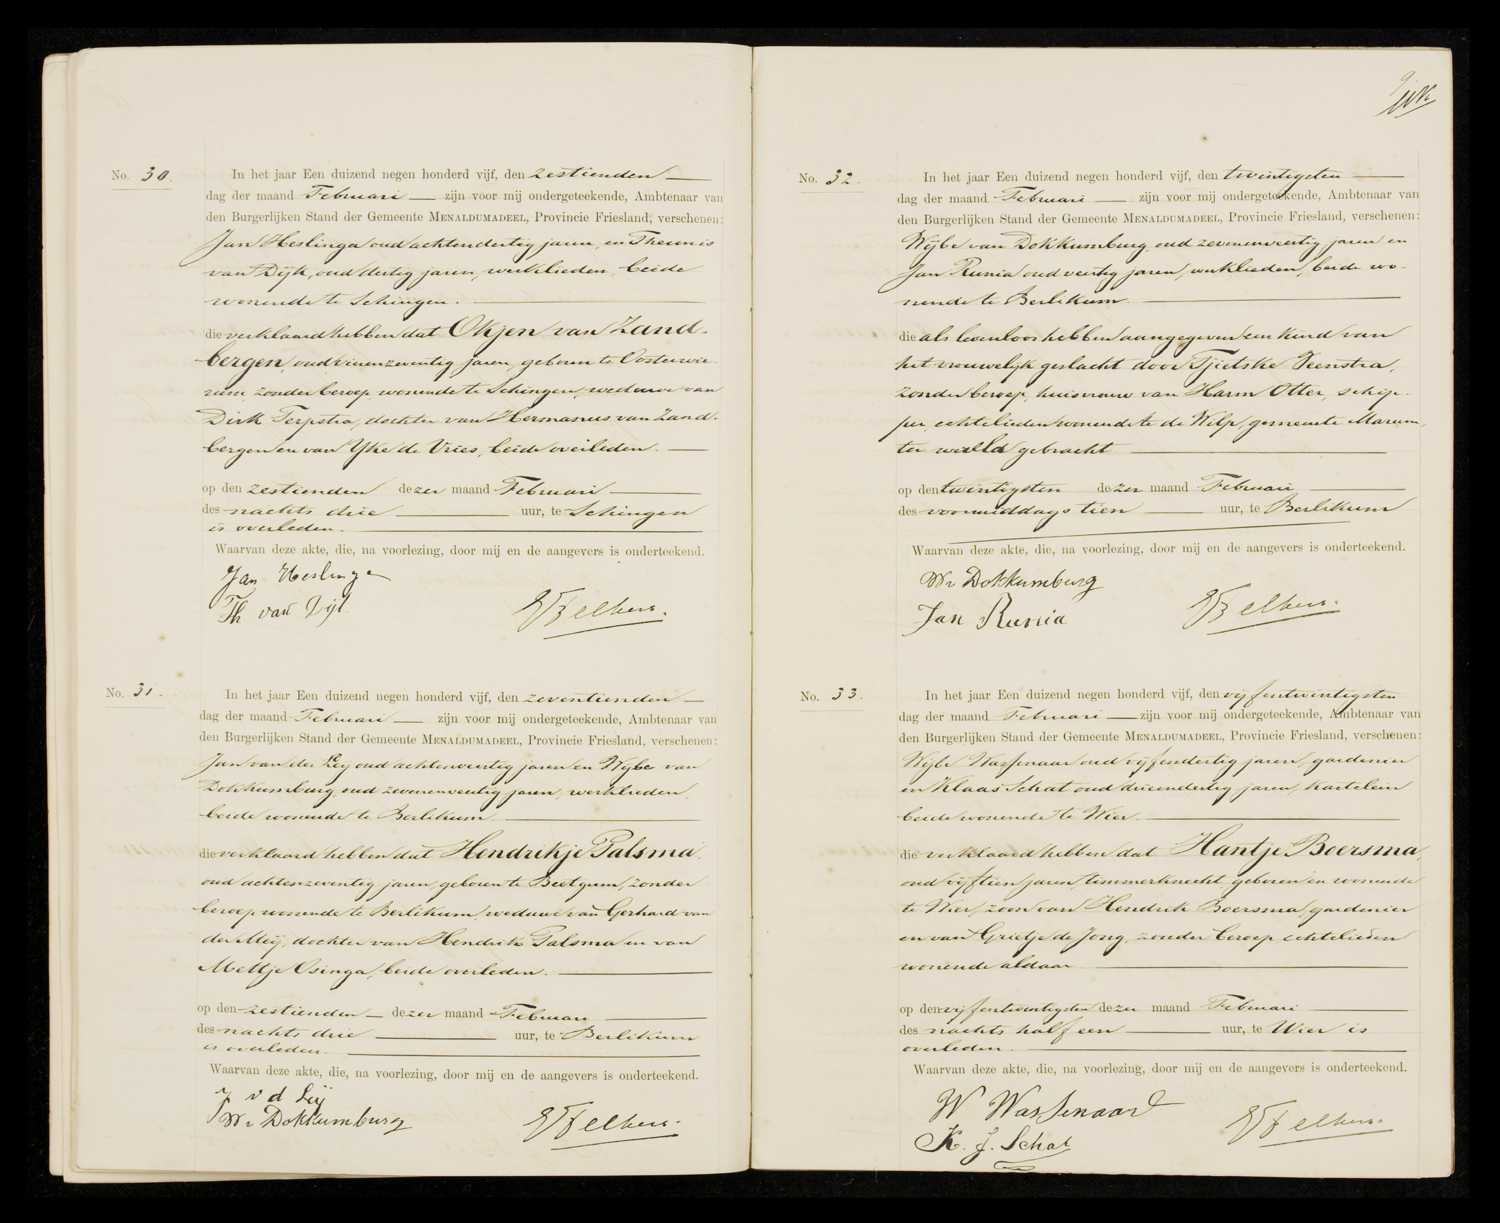 No. 30.
In het jaar Een duizend negen honderd vijf, den zestienden
dag der maand Februari zijn voor mij ondergeteekende, Ambtenaar van
den Burgerlijken Stand der Gemeente MENALDUMADEEL, Provincie Friesland, verschenen:
Jan Heslinga oud achtendertig jaren, en Theunis
van Dijk, oud dertig jaren, werklieden, beide
wonende te Schingen.
die verklaard hebben dat Okjen van Zand-
bergen, oud zeventig jaren, geboren te Oosterwie-
rum, zonder beroep, wonende te Schingen, weduwe van
Dirk Terpstra, dochter van Hermanus van Zand-
bergen en van Yke de Vries, beide overleden.
op den zestienden dezer maand Februari
des nachts drie uur, te Schingen
is overleden.
Waarvan deze akte, die, na voorlezing, door mij en de aangevers is onderteekend.
Jan Heslinga
Th van Dijk
No. 31.
In het jaar Een duizend negen honderd vijf, den zeventienden
dag der maand Februari zijn voor mij ondergeteekende, Ambtenaar van
den Burgerlijken Stand der Gemeente MENALDUMADEEL, Provincie Friesland, verschenen:
Jan van der Leij oud achtenveertig jaren en Wybe van
Dokkumburg, oud zevenenveertig jaren, werklieden,
beide wonende te Berlikum.
die verklaard hebben dat Hendrikje Palsma,
oud achtenzeventig jaren, geboren te Beetgum, zonder
beroep, wonende te Berlikum, weduwe van Gerhard van
der Meij, dochter van Hendrik Palsma en van
Mettje Osinga, beide overleden.
op den zestienden dezer maand Februari
des nachts drie uur, te Berlikum
is overleden.
Waarvan deze akte, die, na voorlezing, door mij en de aangevers is onderteekend.
J v d Leij
W v Dokkumburg
No. 32.
In het jaar Een duizend negen honderd vijf, den twintigsten
dag der maand Februari zijn voor mij ondergeteekende, Ambtenaar van
den Burgerlijken Stand der Gemeente MENALDUMADEEL, Provincie Friesland, verschenen:
Wijbe van Dokkumburg, oud zevenenveertig jaren en
Jan Runia oud veertig jaren, werklieden, beide wo-
nende te Berlikum
die als levenloos hebben aangegeven een kind van
het vrouwelijk geslacht door Tjietske Veenstra,
zonder beroep, huisvrouw van Harm Otter, schip-
per, echtelieden wonende te de Wilp, gemeente Marum,
ter wereld gebracht
op den twintigsten dezer maand Februari
des voormiddags tien uur, te Berlikum
Waarvan deze akte, die, na voorlezing, door mij en de aangevers is onderteekend.
W v Dokkumburg
Jan Runia
No. 33.
In het jaar Een duizend negen honderd vijf, den vijfentwintigsten
dag der maand Februari zijn voor mij ondergeteekende, Ambtenaar van
den Burgerlijken Stand der Gemeente MENALDUMADEEL, Provincie Friesland, verschenen:
Wijbe Wassenaar oud vijfendertig jaren, gardenier
en Klaas Schat oud drieendertig jaren, kastelein
beide wonende te Wier.
die verklaard hebben dat Hantje Boersma,
oud vijftien jaren, timmerknecht, geboren en wonende
te Wier, zoon van Hendrik Boersma, gardenier
en van Grietje de Jong, zonder beroep, echtelieden
wonende aldaar
op den vijfentwintigsten dezer maand Februari
des nachts half een uur, te Wier is
overleden.
Waarvan deze akte, die, na voorlezing, door mij en de aangevers is onderteekend.
W Wassenaar
K. J. Schat